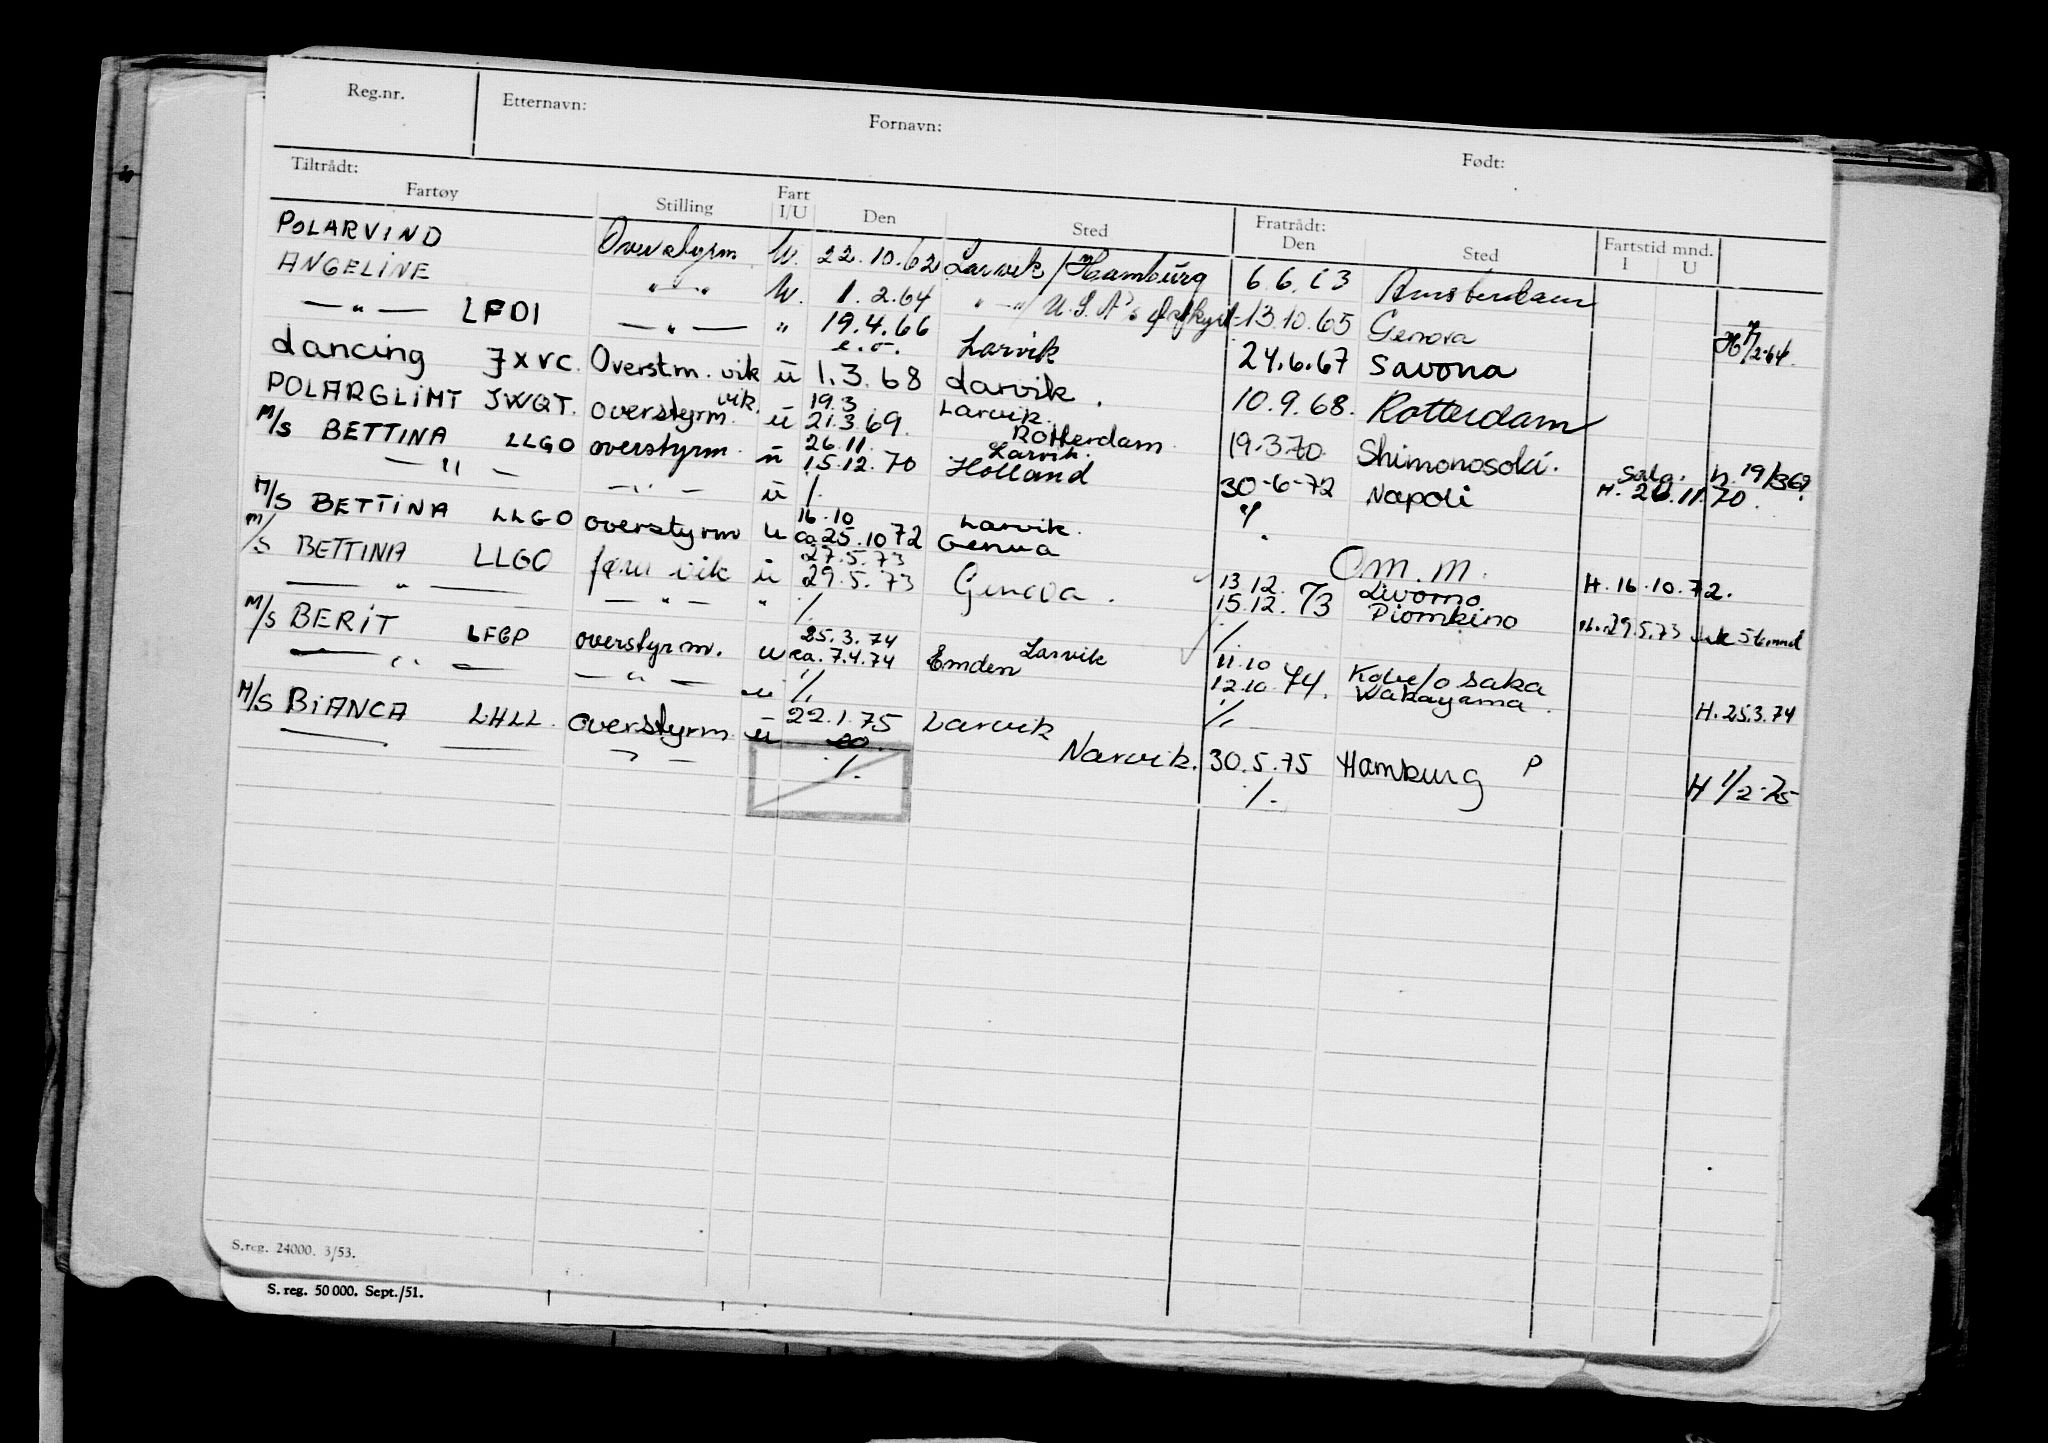 Reg.nr. Etternavn: Fornavn: Født:
Tiltrådt: Fratrådt:
Fartøy Stilling Fart I/U Den Sted Den Sted Fartstid mnd. I U
POLARVIND Overstyrm U. 22.10.62 Larvik/Hamburg 6.6.63 Amsterdam
ANGELINE -"- U. 1.2.64 -"- U.S.A's 13.10.65 Genova H 7/2-64.
-"- LFDI -"- " 19.4.66 e.o. Larvik 24.6.67 Savona
dancing JXVC. Overstm. vik ü 1.3.68 Larvik. 10.9.68. Rotterdam
POLARGLIMT JWQT. overstyrm. vik. ü 19.3 21.3.69. Larvik. Rotterdam. 19.3.70. Shimonosoki. salg. h. 19/3 69.
M/S BETTINA LLGO overstyrm. ü 26.11. 15.12.70 Larvik. Holland 30-6-72 Napoli H. 26.11.70.
-"- -"- ü /. "/.
M/S BETTINA LLGO overstyrm u 16.10 ca 25.10 72 Larvik. Genua O.m.m. H.16.10.72.
M/S BETTINA LLGO føru vik ü 27.5.73 29.5.73 Genova. 13.12. 15.12. 73 Livorno. Piombino H. 29.5.73
-"- -"- " /. /.
M/S BERIT LFGP overstyrm. u 25.3.74 ca. 7.4.74 Emden Larvik 11.10 12.10 74. Kobe/osaka Wakayama. H. 25.3.74
-"- -"- u /. /.
M/S BIANCA LHLL. overstyrm ü 22.1.75 Larvik Narvik. 30.5.75 Hamburg P H 1/2-75
-"- /. /.
S.reg. 24000. 3/53.
S. reg. 50 000. Sept./51.